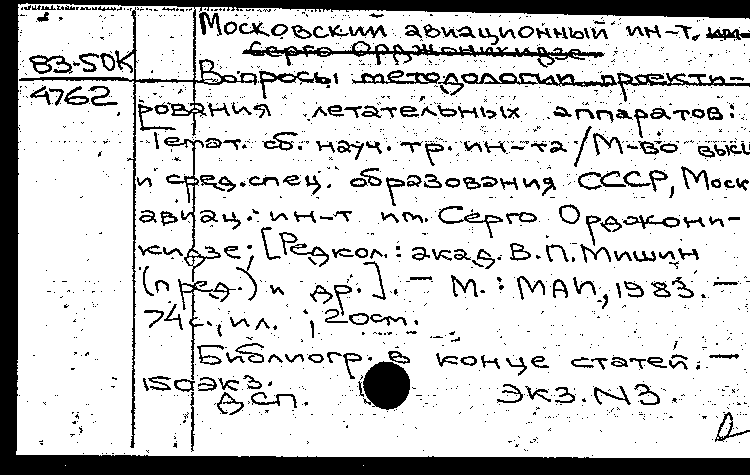 Московский авиационный ин-т. им.
Серго Орджоникидзе
83-5ДК
Вопросы методологии проекти-
4762
рования летательных аппаратов:
Темат. сб. науч. тр. ин-та / М-во высш
и сред. спец. образования СССР, Моск
авиац. ин-т им. Серго Орджони-
кидзе; [Редкол.: акад. В.П. Мишин
(пред.) и др.]. — М.: МАИ, 1983. —
74 с., ил. ; 20 см.
Библиогр. в конце статей. —
150 экз.
ДСП. ЭКЗ. N3.